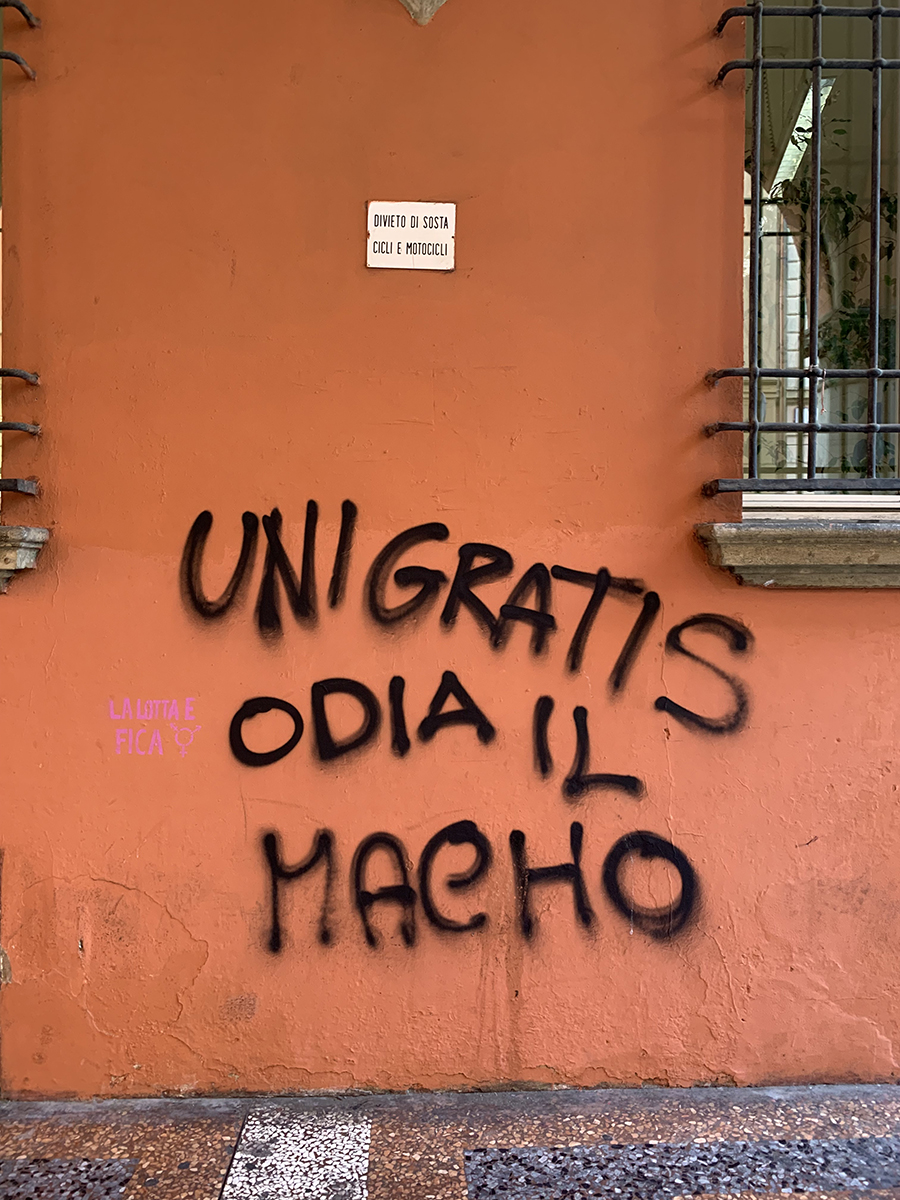 DIVIETO DI SOSTA
CICLI E MOTOCICLI
UNI GRATIS
ODIA IL
MACHO
LA LOTTA E
FICA